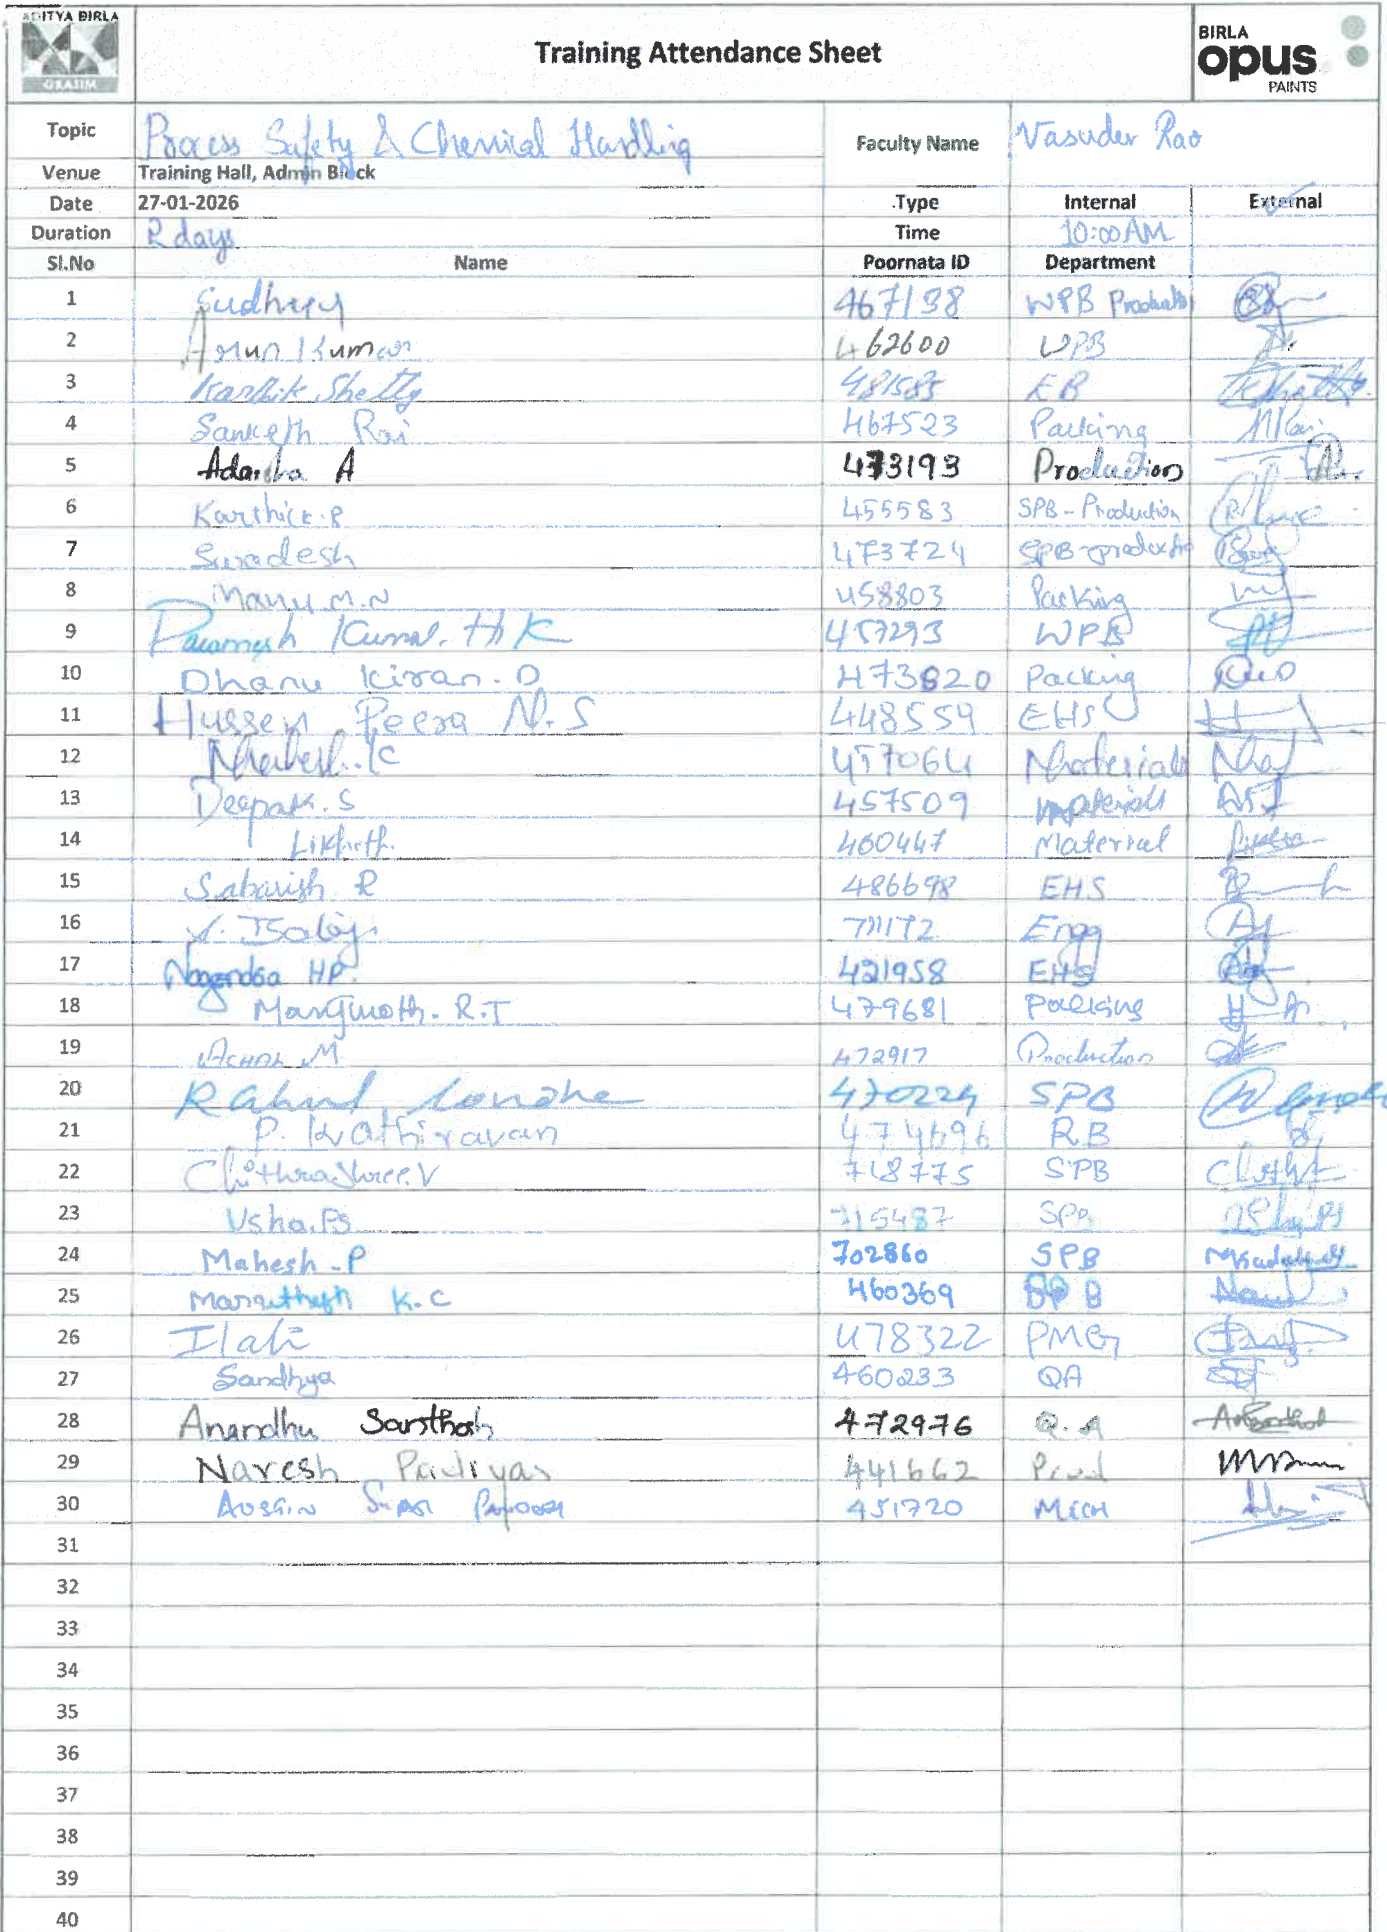 ADITYA BIRLA
GRASIM
Training Attendance Sheet
BIRLA
opus
PAINTS
Topic Process Safety & Chemical Handling Faculty Name Vasudev Rao
Venue Training Hall, Admin Block
Date 27-01-2026 Type Internal External
Duration 2 days Time 10:00 AM
Sl.No Name Poornata ID Department
1 467138 WPB
2 Arun Kumar 462600 WPB
3 Karthik Shetty 481585 EB
4 Sanketh Rai 467523 Packing
5 Adarsha A 473193 Production
6 Karthick.P 455583 SPB-Production
7 473724 SPB-
8 Manu.M.N 458803 Packing
9 Paramesh Kumar. H K 457293 WPB
10 Dhanu Kiran.D 473820 Packing
11 Hussen Peera N.S 448559 EHS
12 457064 Materials
13 Deepak.S 457509 materials
14 Likhith. 460447 Material
15 Sabarish R 486698 EHS
16 711172 Engg
17 Nagendra HP. 421958 EHS
18 Manjunath.R.T 479681 Packing
19 M 472917 Production
20 Rahul Londhe 470224 SPB
21 P. Kathiravan 474696 R.B
22 Chithrashree.V 718775 SPB
23 Usha.P.S 715487 SPB
24 Mahesh-P 702860 SPB
25 K.C 460369 SPB
26 478322 PMG
27 Sandhya 460233 QA
28 Anandhu Santhosh 472976 Q.A
29 Naresh Padiyar 441662 Prod
30 451720 MECH
31
32
33
34
35
36
37
38
39
40